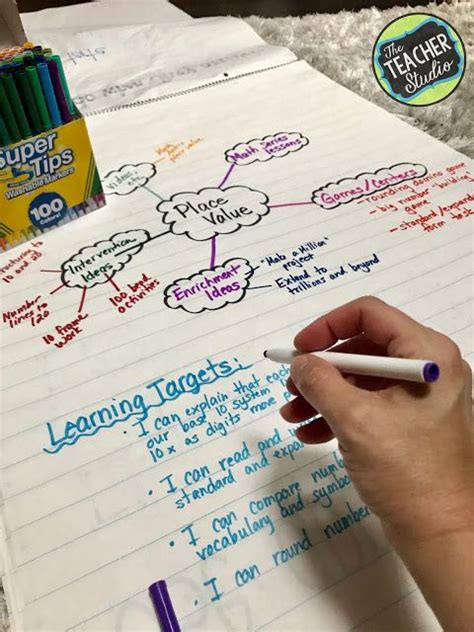 The
TEACHER
Studio
Super
Tips
Washable Markers
100
Colors!
Videos
Math Series
lessons
Place
Value
Games/Centers
- rounding domino game
- big number "building"
game
- standard/expanded
form
Intervention
Ideas
10 and
Number
lines to
120
10 frame
work
100 bead
activities
Enrichment
Ideas
"Make a Million"
project
Extend to
trillions and beyond
Learning Targets:
• I can explain that each
our base 10 system
10 x as digits move
• I can read and
standard and
• I can compare
vocabulary and
• I can round